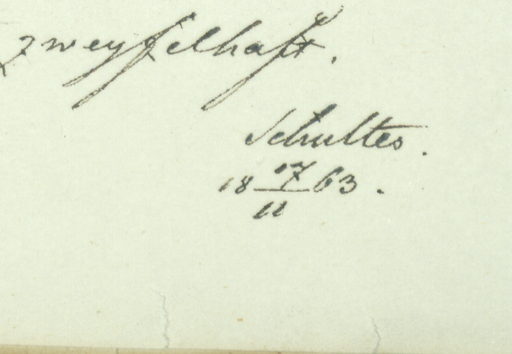 zweyfelhaft.
Schultes.
18 17/11 63.